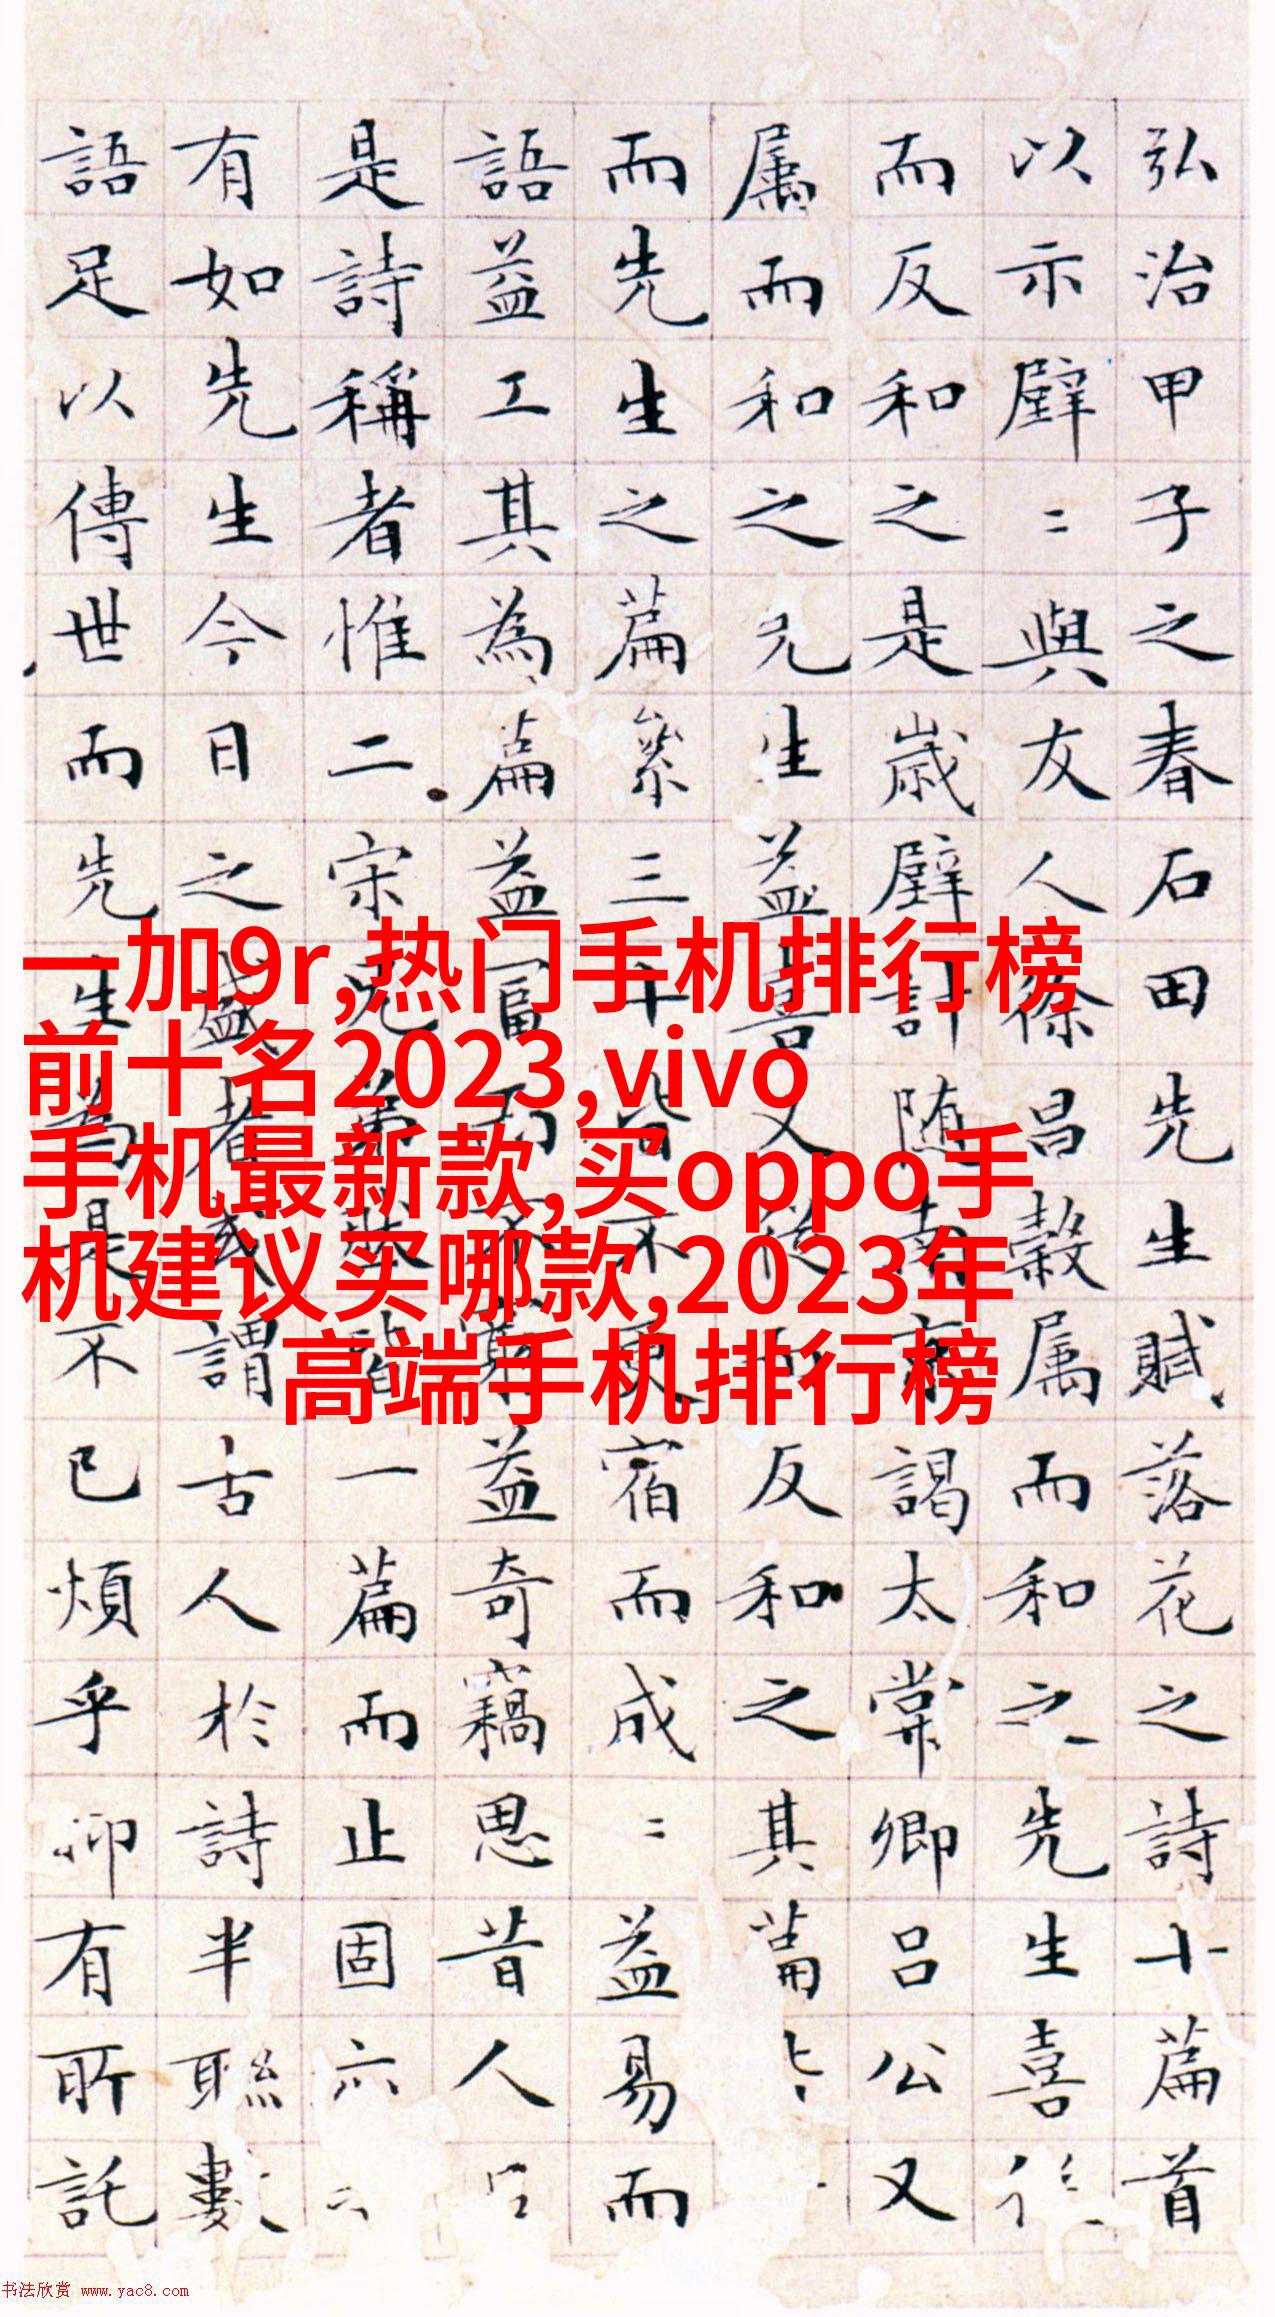 弘治甲子之春石田先生賦落花之詩十篇首
以示璧〻與友人徐昌穀属而和之先生喜
而反和之是歳璧計随南京謁太常卿呂公又
属而和之先生益喜又從而反和之其篇
而先生之篇累三十皆不更宿而成〻益易而
語益工其為篇益富而不窮益奇竊思昔人
是詩稱者惟二宋兄弟然皆一篇而止固六
有如先生今日之盛者或謂古人於詩半聯數
語足以傳世而先生為是不已煩乎抑有所託
一加9r,热门手机排行榜
前十名2023,vivo
手机最新款,买oppo手
机建议买哪款,2023年
高端手机排行榜
书法欣赏 www.yac8.com